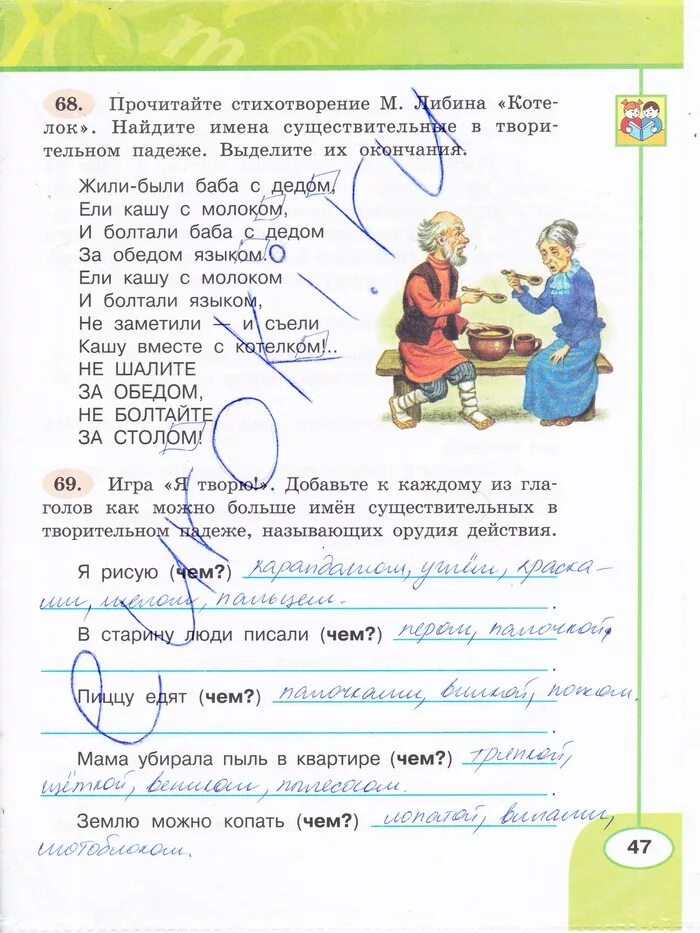 68. Прочитайте стихотворение М. Либина «Коте-
лок». Найдите имена существительные в твори-
тельном падеже. Выделите их окончания.
Жили-были баба с дедом,
Ели кашу с молоком,
И болтали баба с дедом
За обедом языком.
Ели кашу с молоком
И болтали языком,
Не заметили — и съели
Кашу вместе с котелком!..
НЕ ШАЛИТЕ
ЗА ОБЕДОМ,
НЕ БОЛТАЙТЕ
ЗА СТОЛОМ!
69. Игра «Я творю!». Добавьте к каждому из гла-
голов как можно больше имён существительных в
творительном падеже, называющих орудия действия.
Я рисую (чем?) карандашом, углём, краска-
ми, мелом, пальцем.
В старину люди писали (чем?) пером, палочкой,
.
Пиццу едят (чем?) палочками, вилкой, ножом.
.
Мама убирала пыль в квартире (чем?) тряпкой,
щёткой, веником, пылесосом.
Землю можно копать (чем?) лопатой, вилами,
мотоблоком.
47
euroki.ru